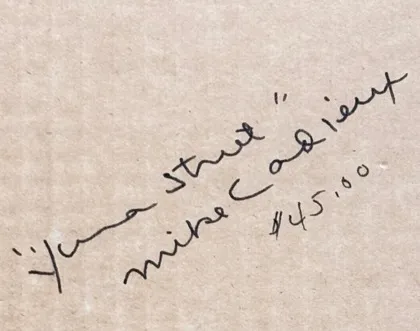 "Yuma Street"
Mike Cadieux
$45.00